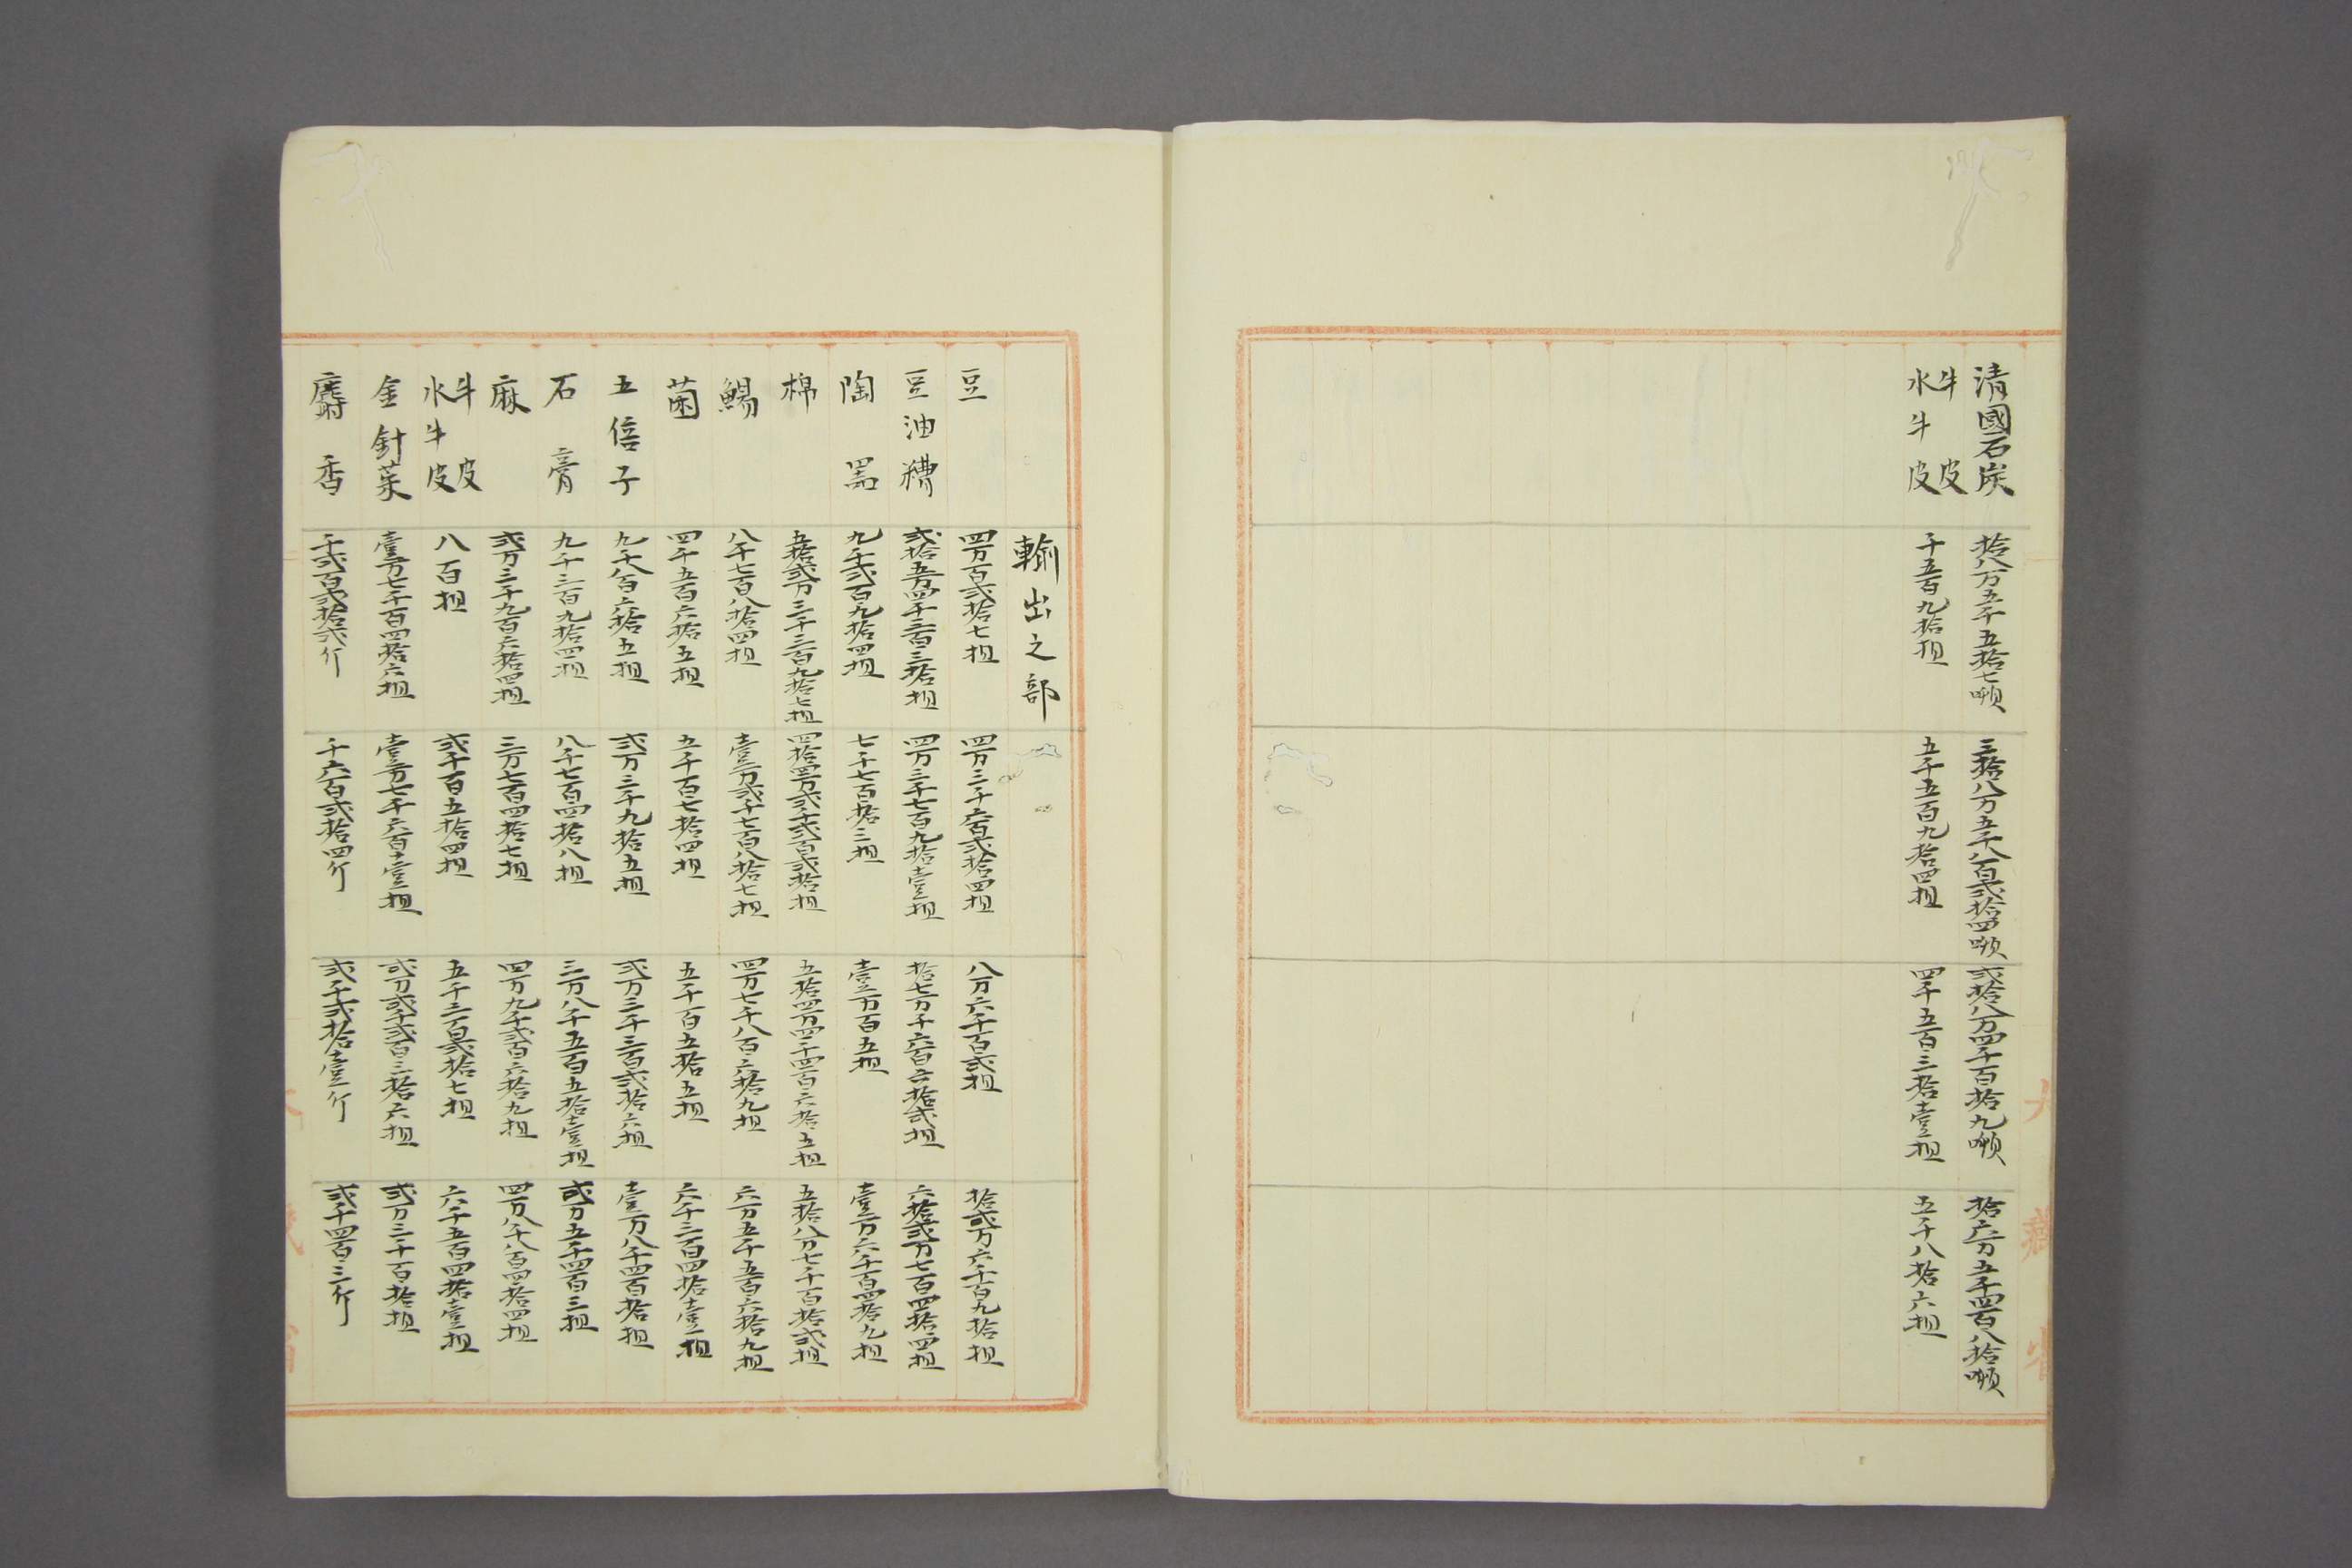 清國石炭 拾八万五千五拾七噸 三拾八万五千八百弐拾四噸 弐拾八万四千百拾九噸 拾六万五千四百八拾噸
牛皮
水牛皮 千五百九拾担 五千五百九拾四担 四千五百三拾壹担 五千八拾六担
大藏省
輸出之部
豆 四万百弐拾七担 四万三千六百弐拾四担 八万六千百弐担 拾弐万六千百九拾担
豆油糟 弐拾五万四千三百三拾担 四万三千七百九拾壹担 拾七万千六百六拾弐担 六拾弐万七百四拾四担
陶器 九千弐百九拾四担 七千七百拾三担 壹万百五担 壹万六千百四拾九担
棉 五拾弐万三千三百九拾七担 四拾四万弐千弐百弐拾担 五拾四万四千四百六拾五担 五拾八万七千百拾弐担
鯣 八千七百八拾四担 壹万弐千七百八拾七担 四万七千八百六拾九担 六万五千五百六拾九担
菌 四千五百六拾五担 五千百七拾四担 五千百五拾五担 六千三百四拾壹担
五倍子 九千八百六拾五担 弐万三千九拾五担 弐万三千三百弐拾六担 壹万八千四百拾担
石膏 九千三百九拾四担 八千七百四拾八担 三万八千五百五拾壹担 弐万五千四百三担
麻 弐万三千九百六拾四担 三万七百四拾七担 四万九千弐百六拾九担 四万八千八百四拾四担
牛皮
水牛皮 八百担 弐千百五拾四担 五千三百弐拾七担 六千五百四拾壹担
金針菜 壹万七千百四拾六担 壹万七千六百壹担 弐万弐千弐百三拾六担 弐万三千百拾担
麝香 千弐百弐拾弐斤 千六百弐拾四斤 弐千弐拾壹斤 弐千四百三斤